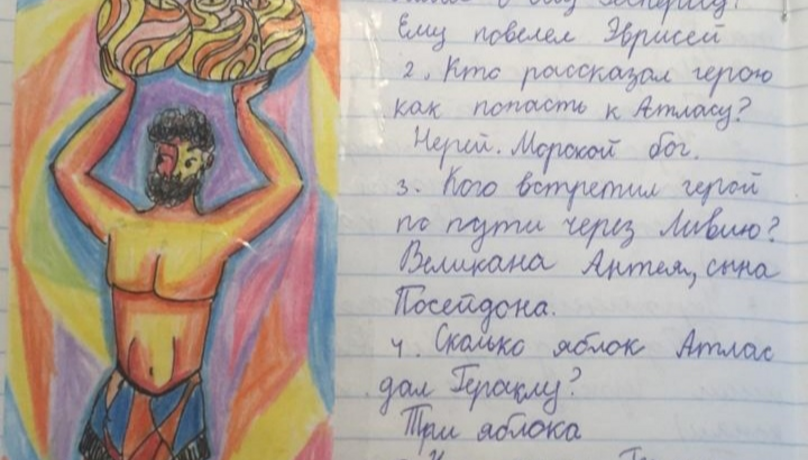 Ему повелел Эврисей
2. Кто рассказал герою
как попасть к Атласу?
Нерей. Морской бог.
3. Кого встретил герой
по пути через Ливию?
Великана Антея, сына
Посейдона.
4. Сколько яблок Атлас
дал Гераклу?
Три яблока